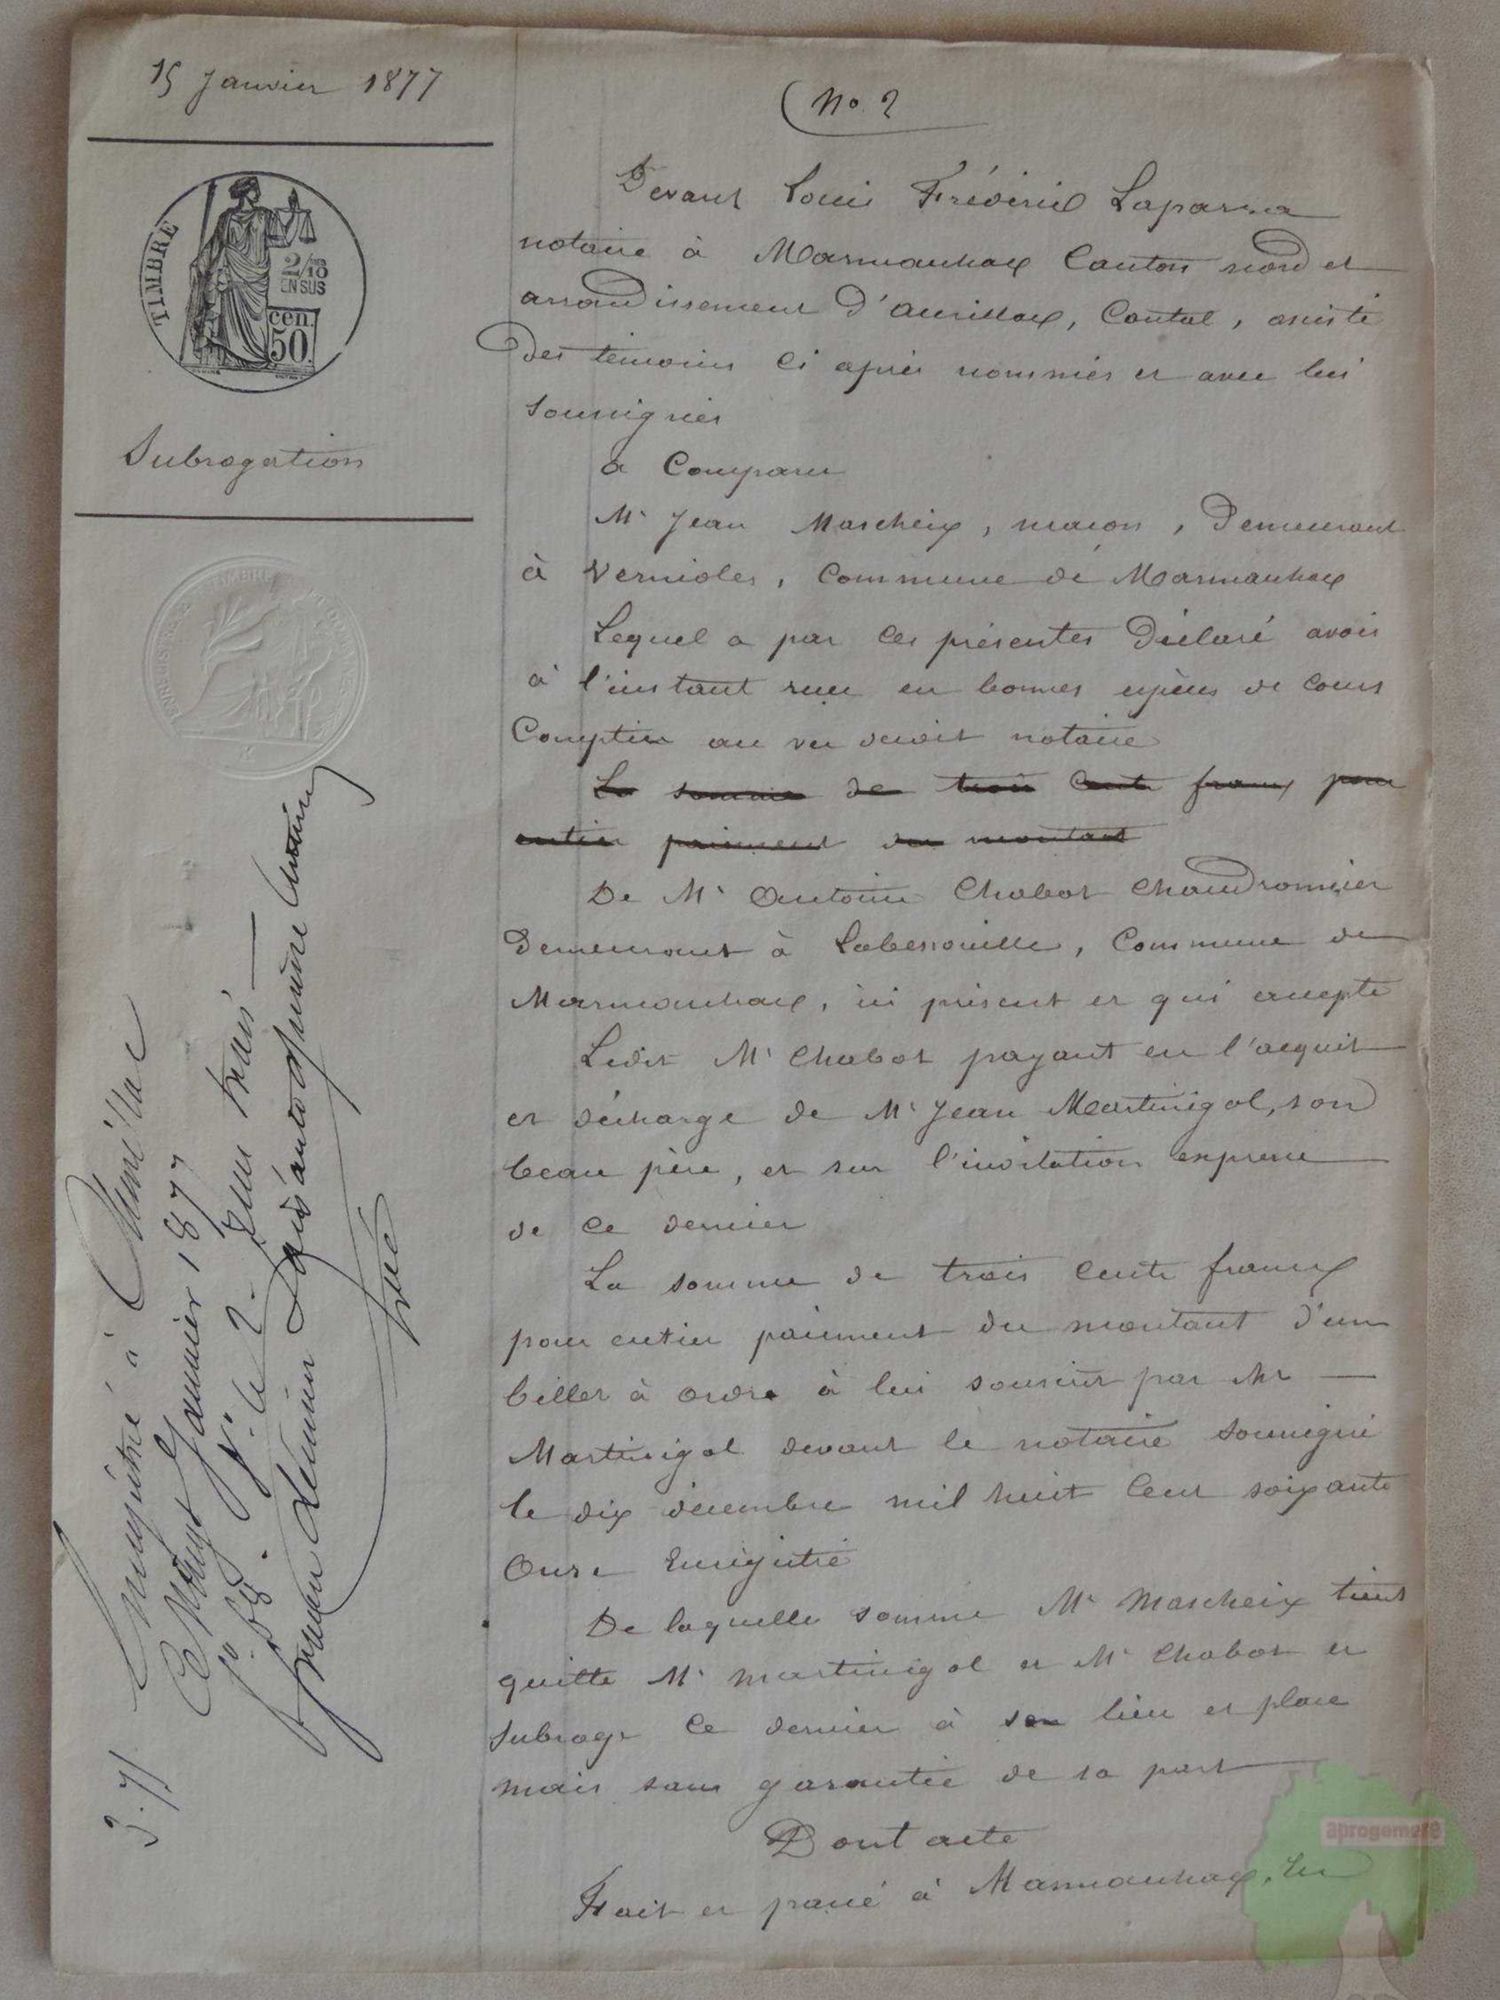 15 Janvier 1877
TIMBRE
2/10
EN SUS
cen.
50.
Subrogation
No. 2
Devant Louis Frédéric Laparra
notaire à Marmanhac Canton nord et
arrondissement d'aurillac, Cantal, assisté
des témoins ci après nommés et avec lui
soussignés
a Comparu
Mr Jean Mascheix, maçon, demeurant
à Vernioles, Commune de Marmanhac
Lequel a par ces présentes déclaré avoir
à l'instant reçu en bonnes espèces de cours
Comptées au vu dudit notaire
La somme de trois cents francs pour
entier paiement du montant
De Mr Antoine Chabot Chaudronnier
demeurant à Labessouille, Commune de
Marmanhac, ici présent et qui accepte
Ledit Mr Chabot payant en l'acquit
et décharge de Mr Jean Martinigol, son
beau père, et sur l'invitation expresse
de ce dernier
La somme de trois cents francs
pour entier paiement du montant d'un
billet à ordre à lui souscrit par Mr
Martinigol devant le notaire soussigné
le dix décembre mil huit cent soixante
onze Enregistré
De laquelle somme Mr Mascheix tient
quitte Mr Martinigol et Mr Chabot et
subroge ce dernier à son lieu et place
mais sans garantie de sa part
Dont acte
Fait et passé à Marmanhac, En
Enregistré à Aurillac
Janvier 1877
fo. 68. c. 2. Reçu trois
francs décimes soixante quinze centimes
3.75
aprogemere